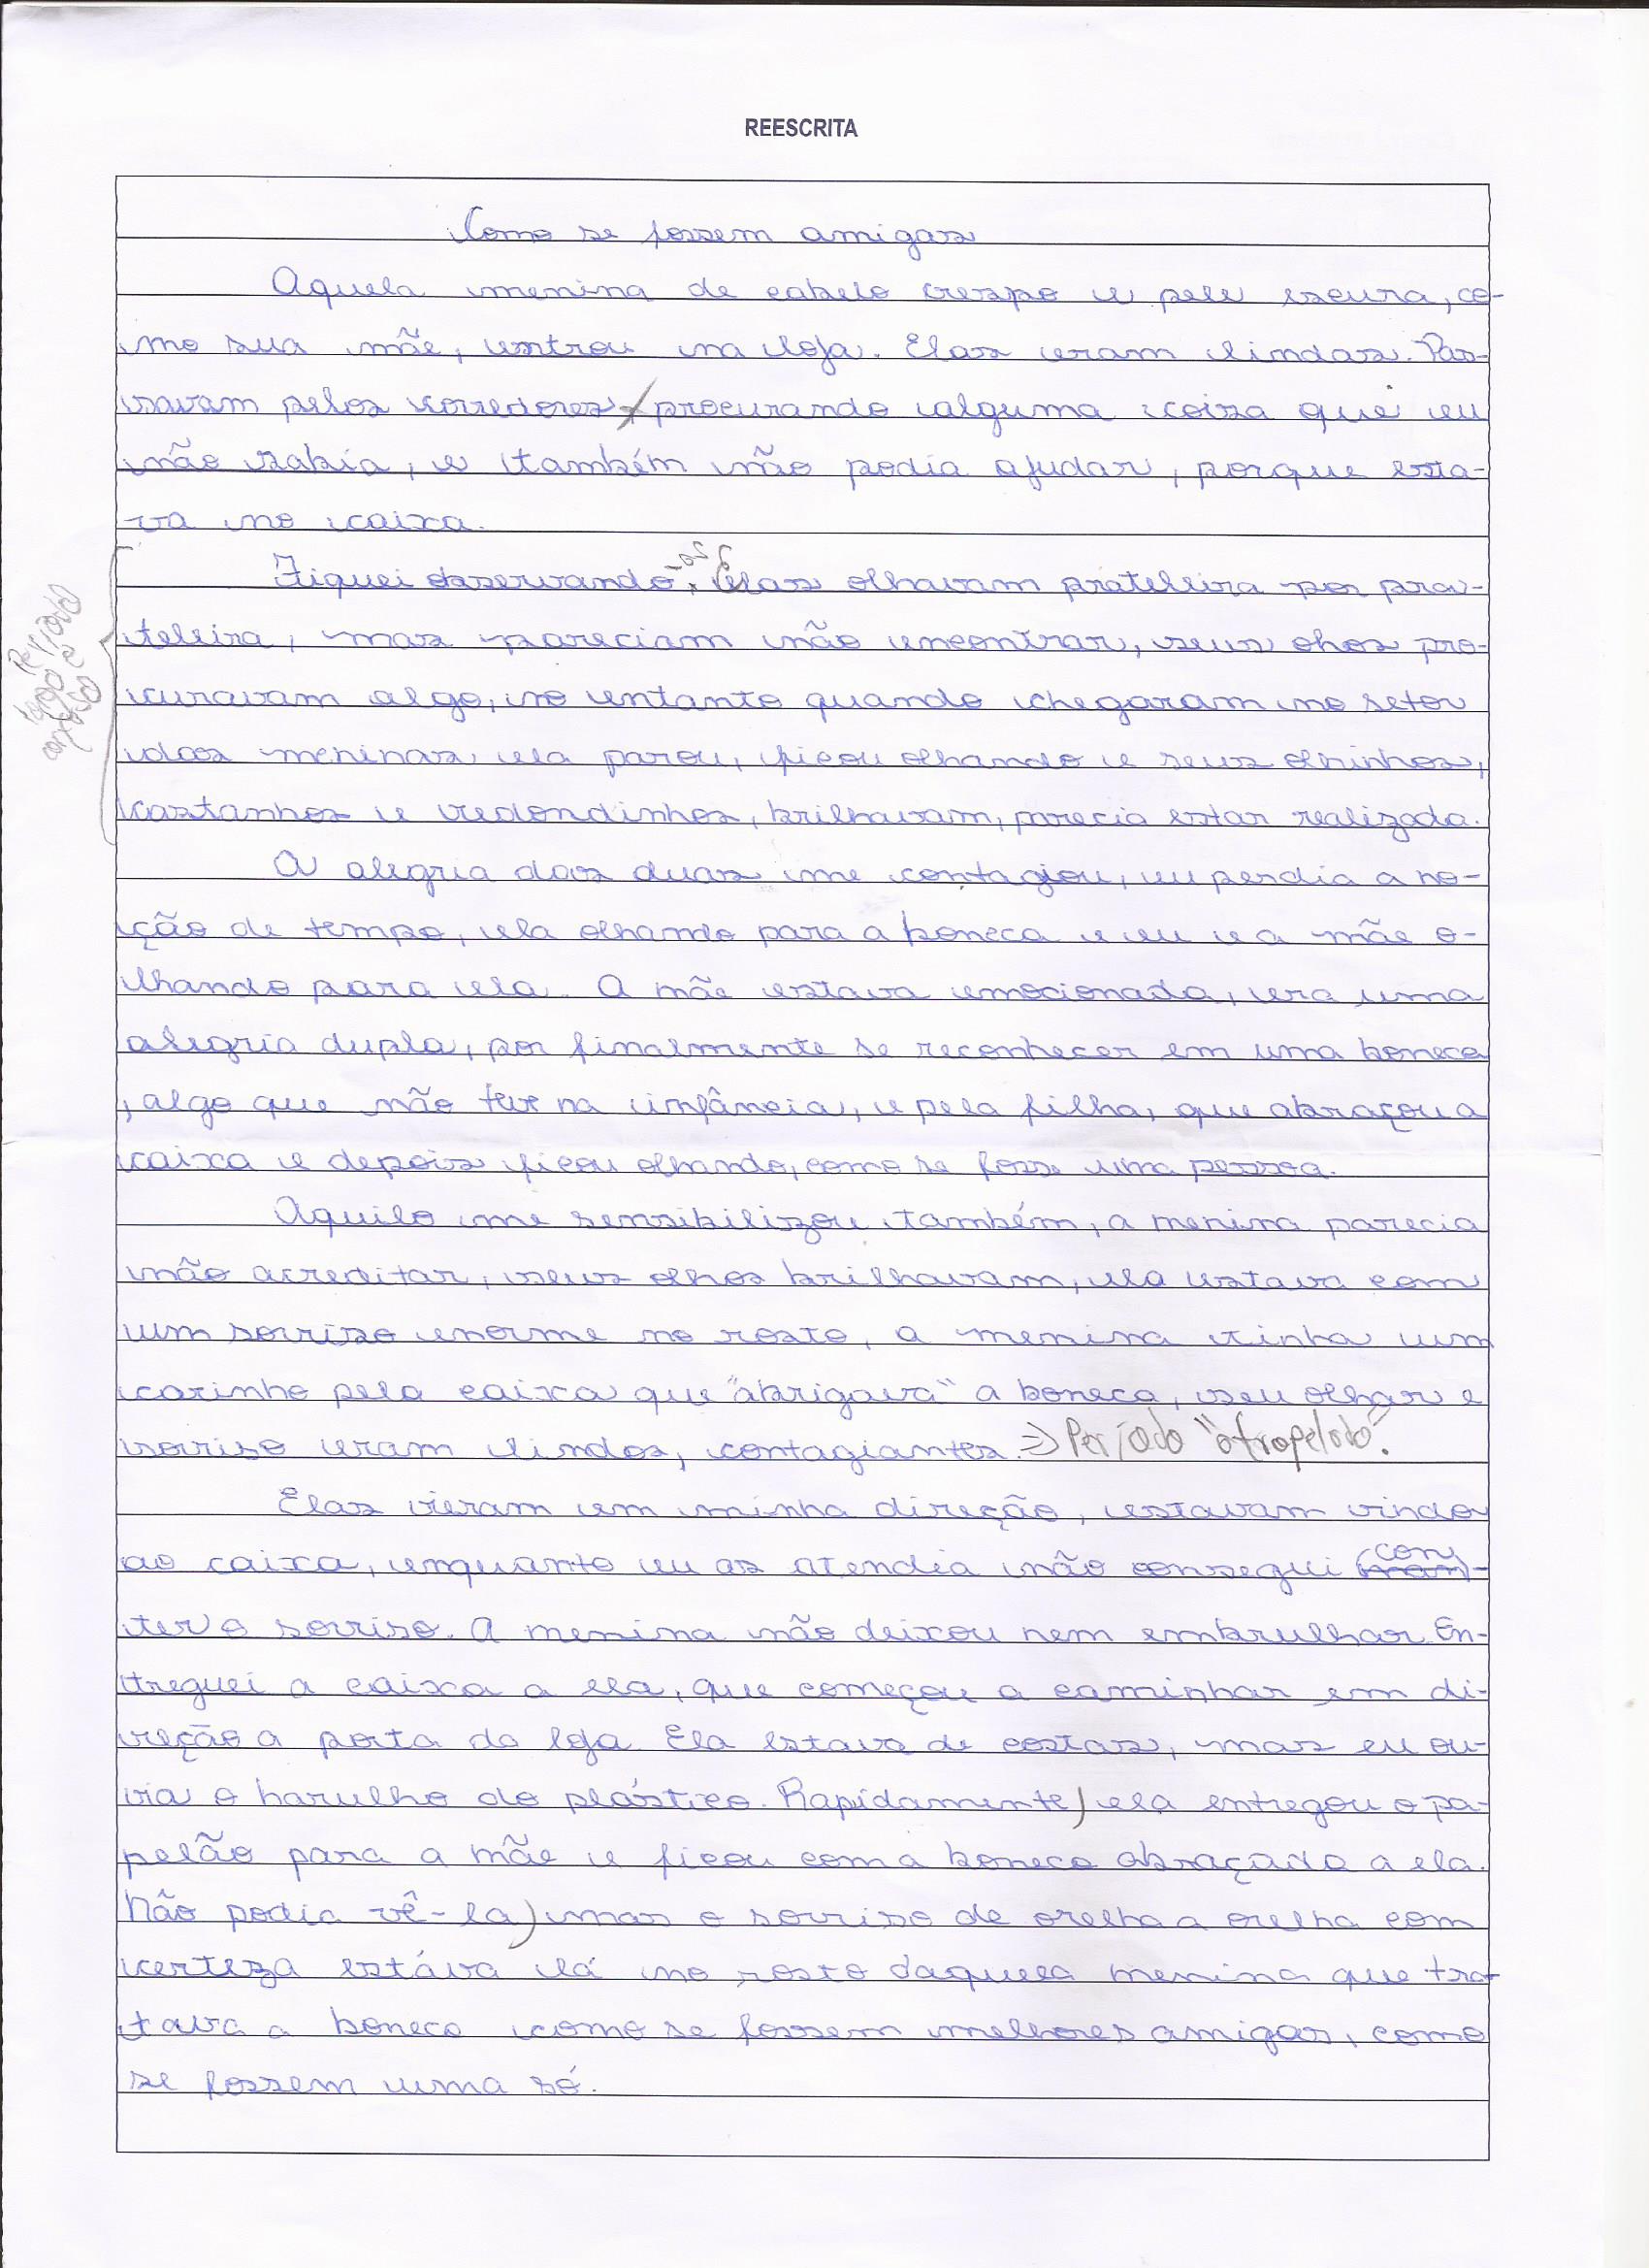 REESCRITA
Como se fossem amigas
Aquela menina de cabelo crespo e pele escura, co-
mo sua mãe, entrou na loja. Elas eram lindas. Pas-
savam pelos corredores, procurando alguma coisa que eu
não sabia, e também não podia ajudar, porque esta-
va no caixa.
Fiquei observando-as. Elas olhavam prateleira por pra-
teleira, mas pareciam não encontrar, seus ohos pro-
curavam algo, no entanto quando chegaram no setor
das meninas ela parou, ficou olhando e seus olhinhos,
castanhos e redondinhos, brilhavam, parecia estar realizada.
Período
longo e
confuso
A alegria das duas me contagiou, eu perdia a no-
ção de tempo, ela olhando para a boneca e eu e a mãe o-
lhando para ela. A mãe estava emocionada, era uma
alegria dupla, por finalmente se reconhecer em uma boneca
, algo que não teve na infância, e pela filha, que abraçou a
caixa e depois ficou olhando, como se fosse uma pessoa.
Aquilo me sensibilizou também, a menina parecia
não acreditar, seus olhos brilhavam, ela estava com
um sorriso enorme no rosto, a menina tinha um
carinho pela caixa que "abrigava" a boneca, seu olhar e
sorriso eram lindos, contagiantes. => Período "atropelado".
Elas vieram em minha direção, estavam vindo
ao caixa, enquanto eu as atendia não consegui con-
ter o sorriso. A menina não deixou nem embrulhar. En-
treguei a caixa a ela, que começou a caminhar em di-
reção a porta da loja. Ela estava de costas, mas eu ou-
via o barulho do plástico. Rapidamente, ela entregou o pa-
pelão para a mãe e ficou com a boneca abraçada a ela.
Não podia vê-la, mas o sorriso de orelha a orelha com
certeza estáva lá no rosto daquela menina que tra-
tava a boneca como se fossem melhores amigas, como
se fossem uma só.